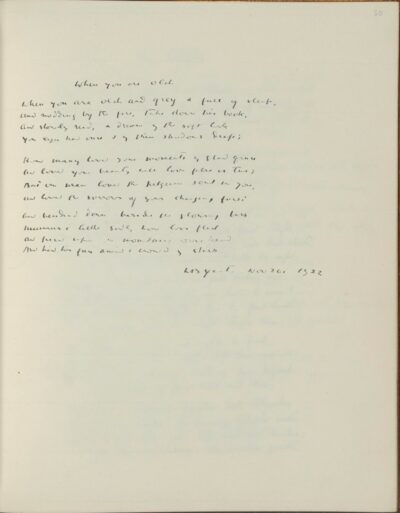 30
When you are old
When you are old and grey & full of sleep,
And nodding by the fire, take down this book,
And slowly read, & dream of the soft look
You eyes had once & of their shadows deep;
How many loved your moments of glad grace
And loved your beauty with love false or true;
But one man loved the pilgrim soul in you,
And loved the sorrows of your changing face;
And bending down beside the glowing bars
Murmur a little sadly, how love fled
And paced upon the mountains over head
And hid his face amid a crowd of stars.
WB Yeats Nov 20 1922